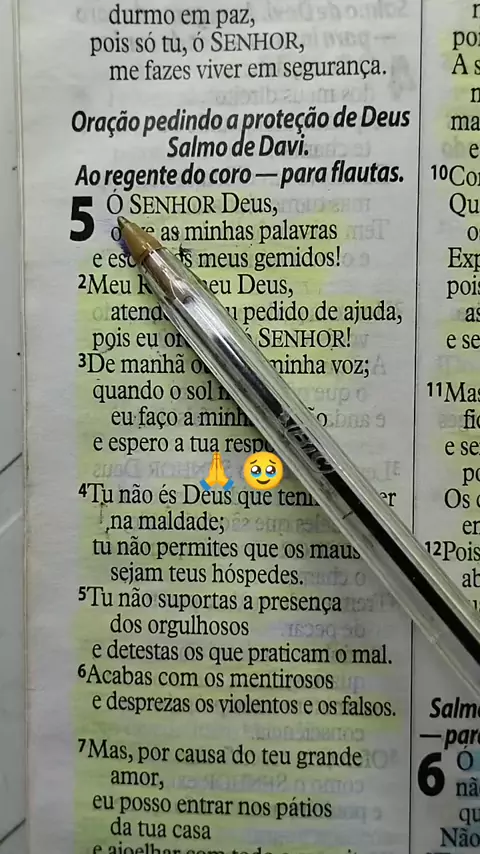 durmo em paz,
pois só tu, ó SENHOR,
me fazes viver em segurança.
Oração pedindo a proteção de Deus
Salmo de Davi.
Ao regente do coro — para flautas.
5 Ó SENHOR Deus,
as minhas palavras
e meus gemidos!
2Meu Deus,
pedido de ajuda,
pois eu SENHOR!
3De manhã minha voz;
quando o sol
eu faço a minha
e espero a tua
4Tu não és Deus que
na maldade;
tu não permites que os maus
sejam teus hóspedes.
5Tu não suportas a presença
dos orgulhosos
e detestas os que praticam o mal.
6Acabas com os mentirosos
e desprezas os violentos e os falsos.
7Mas, por causa do teu grande
amor,
eu posso entrar nos pátios
da tua casa
10
A
e
11Mas
e
Os
12Pois
Salm
6 Ó
Não